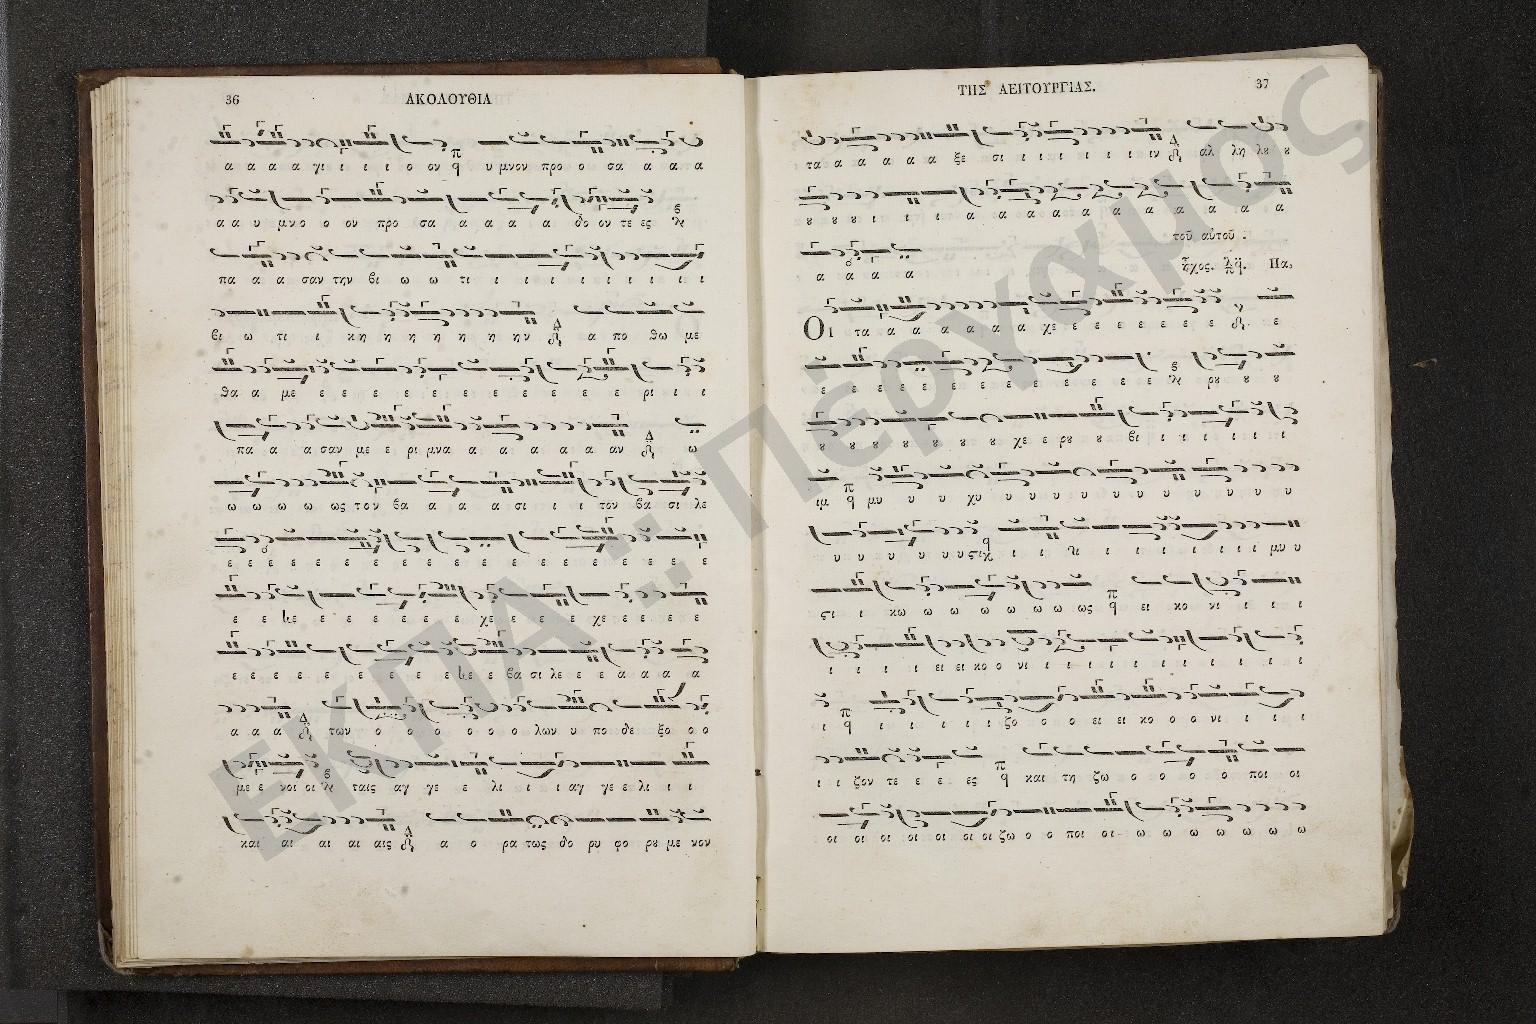 36
ΑΚΟΛΟΥΘΙΑ
α α α α γι ι ι ι ο ον υ μνον προ ο σα α α α
α α υ μνο ο ον προ σα α α α α δο ον τε ες
πα α α σαν την βι ω ω τι ι ι ι ι ι ι ι ι ι
βι ω τι ι κη η η η η η ην α πο θω με
θα α με ε ε ε ε ε ε ε ε ε ε ε ρι ι ι
πα α α σαν με ε ρι μνα α α α α α αν ω
ω ω ω ω ως τον βα α α α σι ι ι τον βα σι λε
ε ε ε ε ε ε ε ε ε ε ε ε ε ε ε ε ε ε
ε ε ε ε ε ε ε ε χε ε ε ε χε ε ε ε ε
ε ε ε ε ε ε ε ε ε ε βα σι λε ε ε α α α α
α α α των ο ο ο ο ο ο λων υ πο δε ξο ο ο
με ε νοι οι ταις αγ γε ε λι ι ι αγ γε ε λι ι ι
και αι αι αι αις α ο ρα τως δο ρυ φο ρȣ με νον
ΤΗΣ ΛΕΙΤΟΥΡΓΙΑΣ.
37
τα α α α α α ξε σι ι ι ι ι ι ι ιν αλ λη λȣ ȣ
ȣ ȣ ȣ ι ι ι α α α α α α α α α α α α
τοῦ αὐτοῦ :
α α α α
ἦχος. Πα,
Οι τα α α α α α α χε ε ε ε ε ε ε ε ε
ε ε ε ε ε ε ε ε ε ε ε ε ε ρȣ ȣ ȣ
ȣ ȣ ȣ ȣ ȣ ȣ ȣ ȣ χε ε ρȣ ȣ βι ι ι ι ι ι ι
ιμ μυ υ υ χυ υ υ υ υ υ υ υ υ υ υ υ υ
υ υ υ υ υ υυςιχ ι ι ι ι ι ι ι ι ι ι μυ υ
ςι ι κω ω ω ω ω ω ω ως ει κο νι ι ι ι
ι ι ι ι ει ει κο ο νι ι ι ι ι ι ι ι ι ι ι ι
ι ι ι ι ι ι ζο ο ο ο ει ει κο ο ο νι ι ι ι
ι ι ζον τε ε ε ες και τη ζω ο ο ο ο ποι οι
οι οι οι οι οι οι οι ζω ο ο ποι οι ω ω ω ω ω ω ω
ΕΚΠΑ :: Πέργαμος